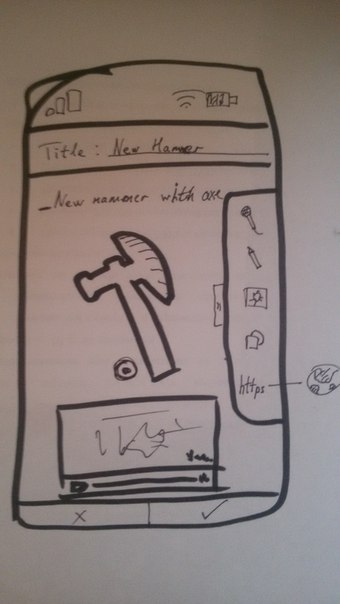 Title : New Hammer
New hammer with axe
https